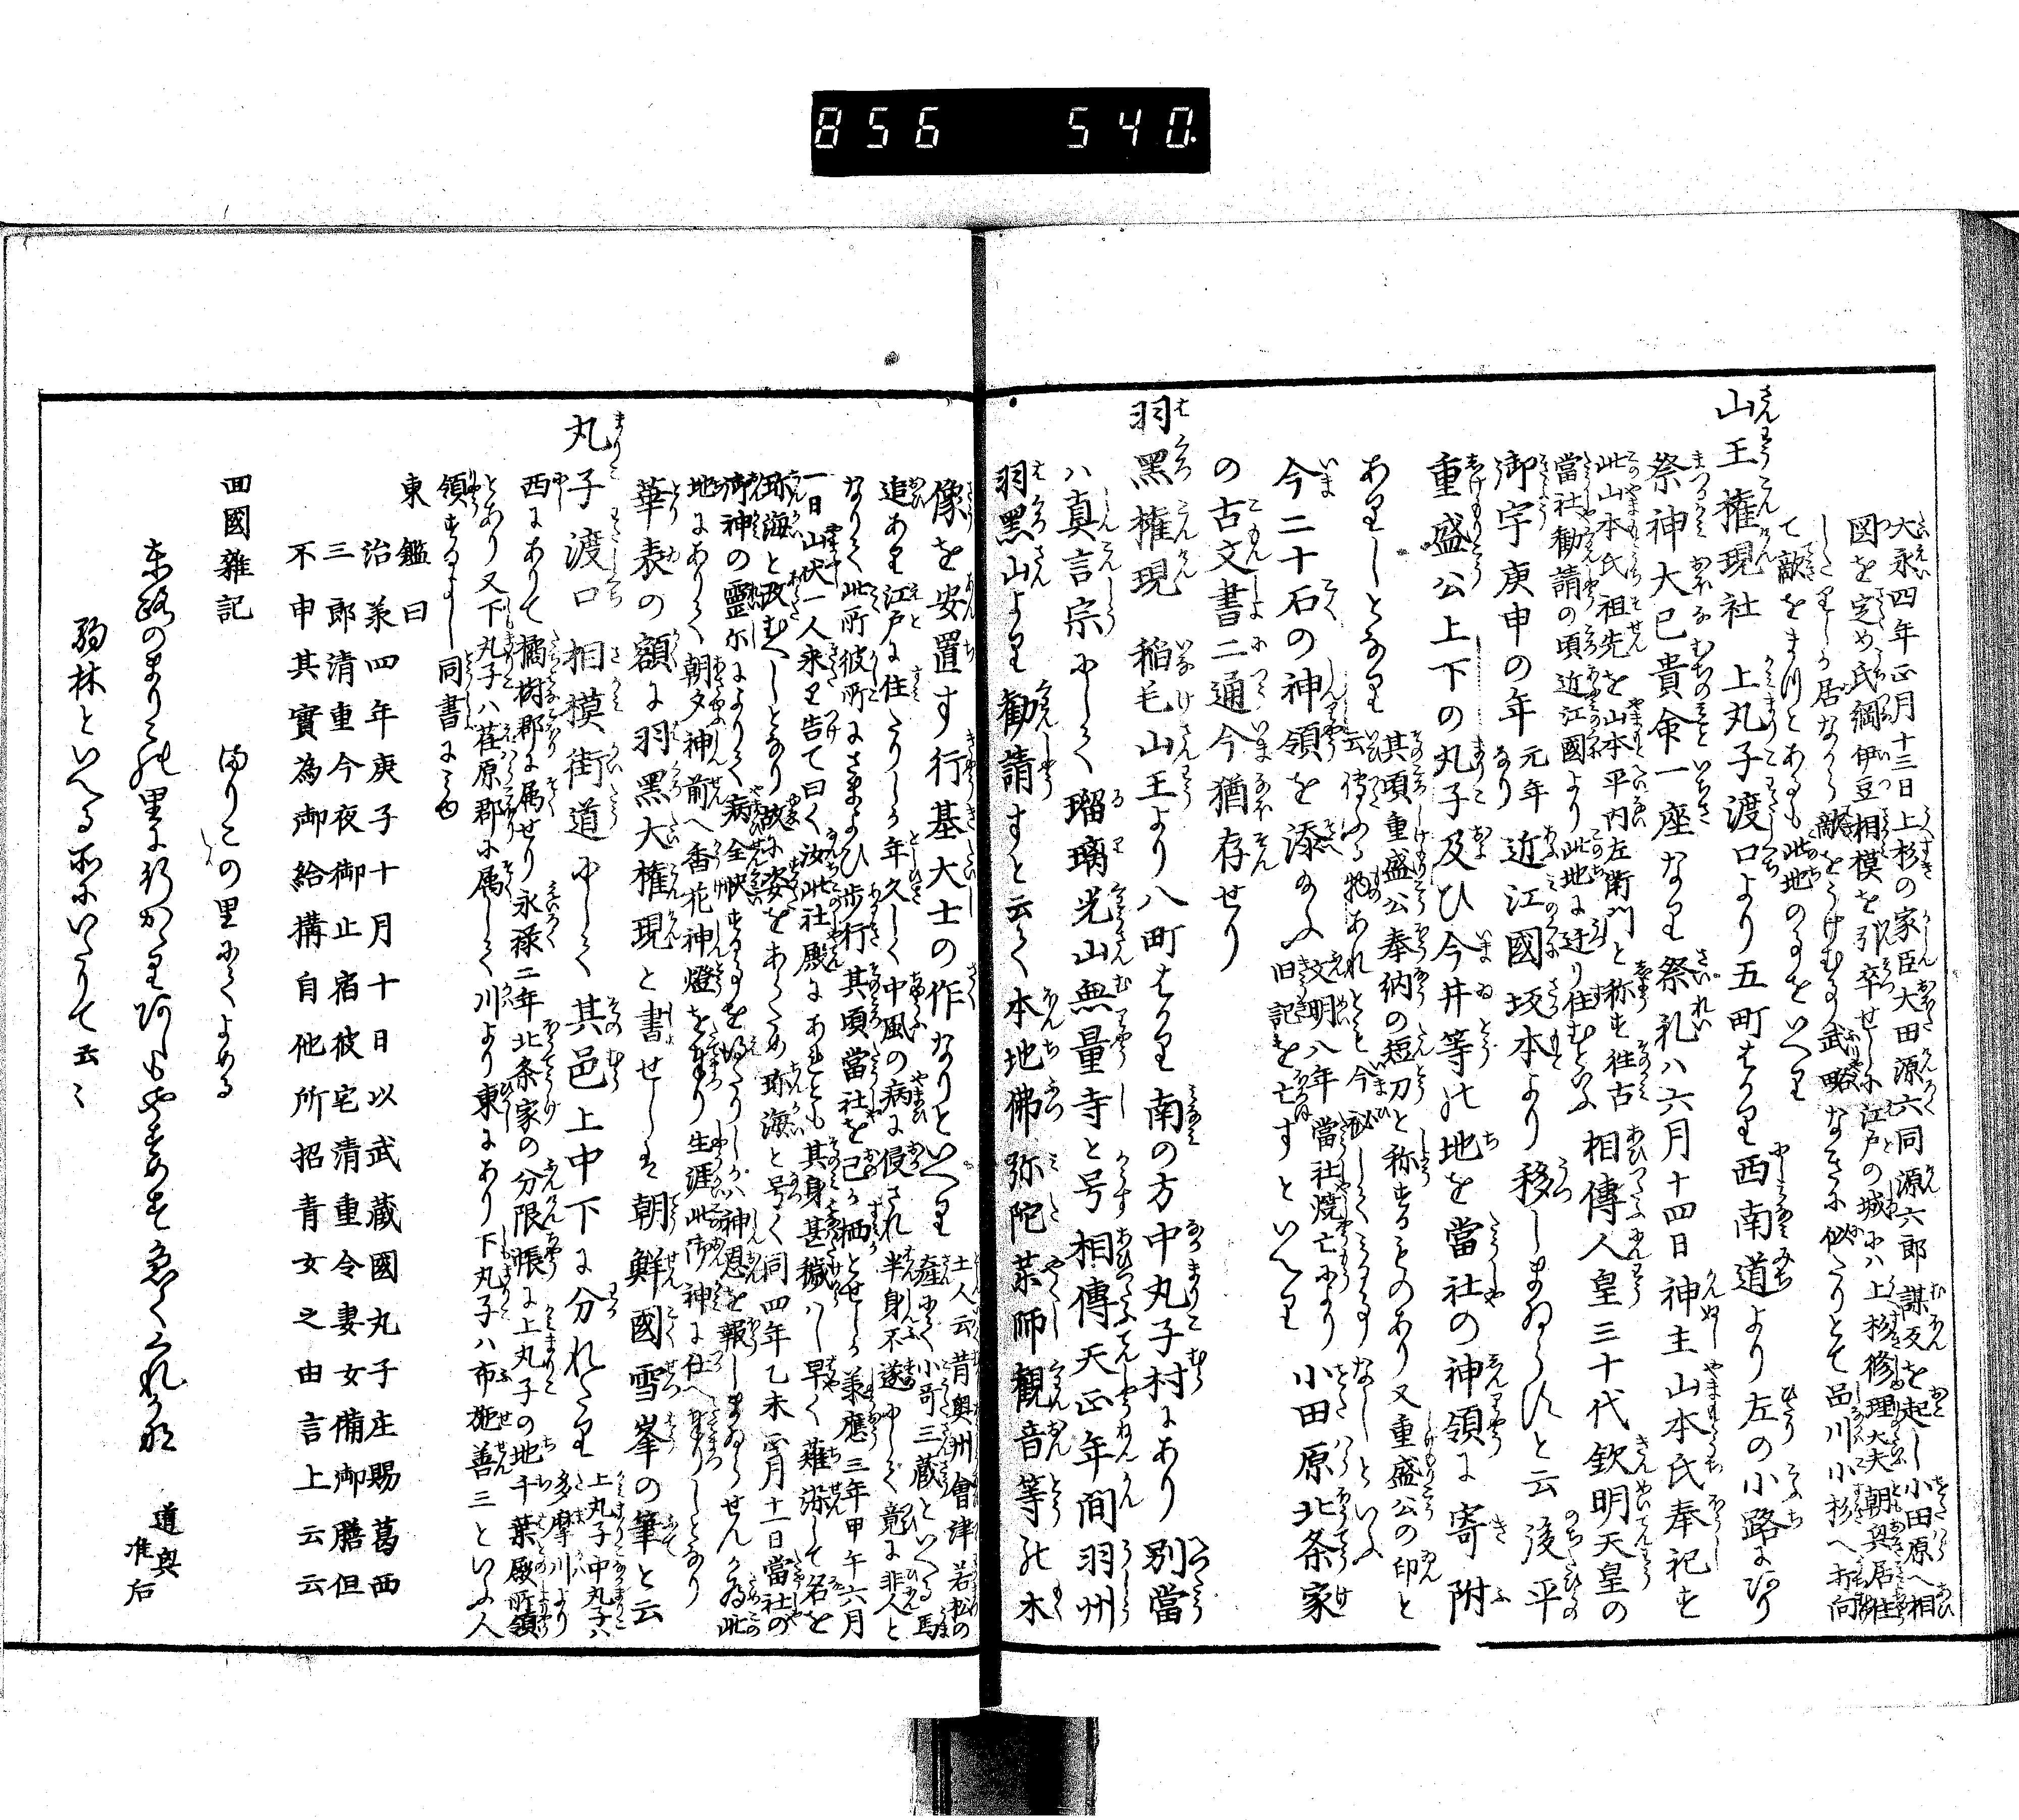 856 540.
大永四年正月十三日上杉の家臣大田源六同源六郎謀反を起し小田原へ相
図を定め氏綱伊豆相模を引卒せしに江戸の城には上杉修理大夫朝興居住
したりしか居なから敵をうけむも武略なきに似たりとて品川小杉へ打向
て敵をまつとあるも此地の事をいへり
山王権現社 上丸子渡口より五町はかり西南道より左の小路にあり
祭神大己貴命一座なり祭礼ハ六月十四日神主山本氏奉祀す
此山本氏祖先を山本平内左衛門と称す往古
當社勧請の頃近江國より此地に迂り住むといふ
相傳人皇三十代欽明天皇の
御宇庚申の年元年なり近江國坂本より移しまゐらすと云後平
重盛公上下の丸子及ひ今井等の地を當社の神領に寄附
ありしとなり
其頃重盛公奉納の短刀と称するものあり又重盛公の印と
云傳ふる物あれとも今秘してみることなしといふ
今二十石の神領を添給ふ
文明八年當社焼亡にかゝり
旧記を亡すといへり
小田原北条家
の古文書二通今猶存せり
羽黑権現 稲毛山王より八町はかり南の方中丸子村にあり別當
ハ真言宗にして瑠璃光山無量寺と号す相傳天正年間羽州
羽黑山より勧請すと云て本地佛弥陀薬師観音等の木
像を安置す行基大士の作なりといへり
土人云昔奥州會津若松の
産にて小哥三蔵といへる馬
追あり江戸に住たりしか年久しく中風の病に侵され半身不遂にして竟に非人と
なりて此所彼所にさまよひ歩行其頃當社を己か栖とせしか承應三年甲午六月
一日山伏一人来り告て曰く汝此社殿にあれとも其身甚穢ハし早く薙染して名を
珎海と改むへしとなり故に姿をあらため珎海と号く同四年乙未正月十一日當社の
御神の霊示によりて病全快することを得たりしかハ神恩を報しまゐらせんか為此
地にありて朝夕神前へ香花神燈を奉り生涯此御神に仕へ奉りしとなり
華表の額に羽黑大権現と書せしは朝鮮國雪峯の筆と云
丸子渡口 相模街道にして其邑上中下に分れたり
上丸子中丸子ハ
多摩川より
西にありて橘樹郡に属せり永禄二年北条家の分限帳に上丸子の地千葉殿所領
とあり又下丸子ハ荏原郡に属して川より東にあり下丸子ハ布施善三といふ人
領するよし同書にみゆ
東鑑曰
治承四年庚子十月十日以武蔵國丸子庄賜葛西
三郎清重今夜御止宿彼宅清重令妻女備御膳但
不申其實為御給構自他所招青女之由言上云云
回國雜記
まりこの里にてよめる
東路のまりこの里に行かゝりあしもやすめす急くくれかな
道興
准后
駒林といへる所にいたりて云々